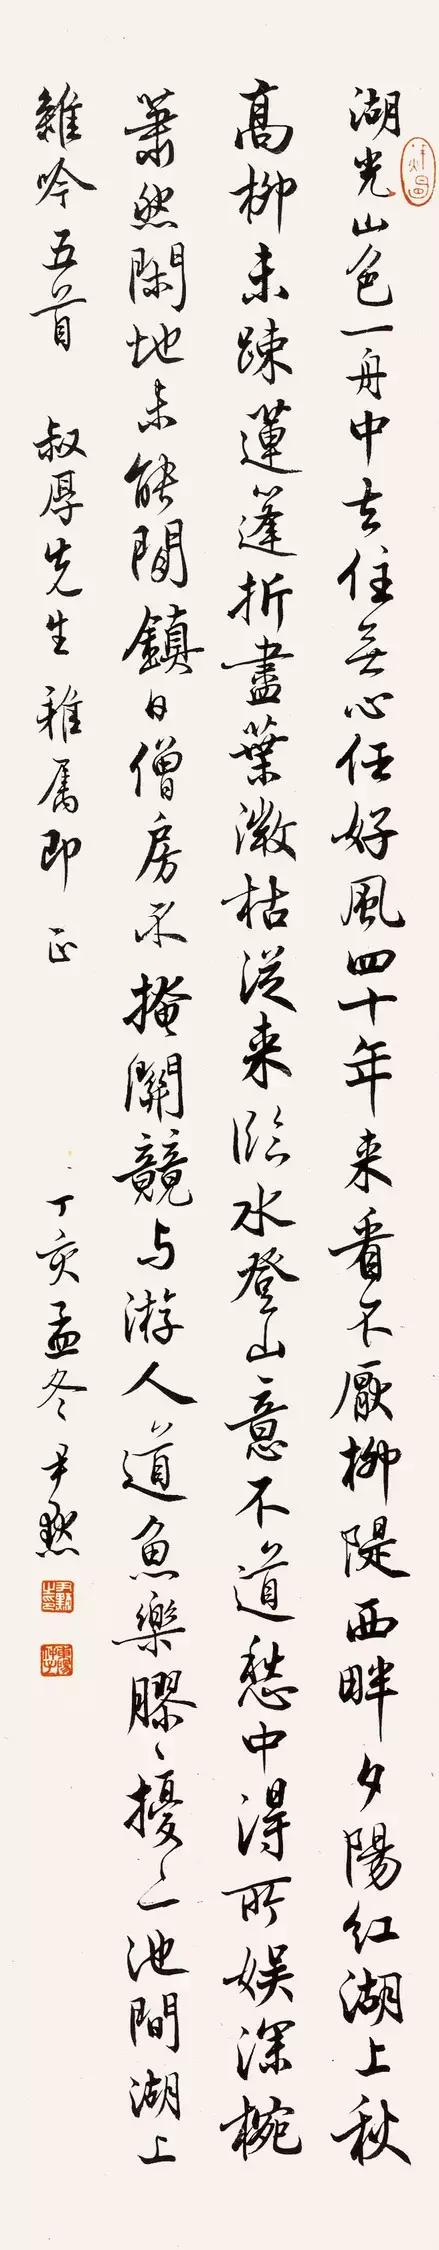 湖光山色一舟中去住無心任好風四十年来看不厭柳隄西畔夕陽紅湖上秋
高柳未疎蓮蓬折盡葉微枯從来臨水登山意不道愁中得所娱深椀
蕭然閑地未能閒鎮日僧房不掩關競与游人道魚樂膠〻擾〻一池間湖上
雜吟五首 叔厚先生雅属即正 丁亥孟冬尹默